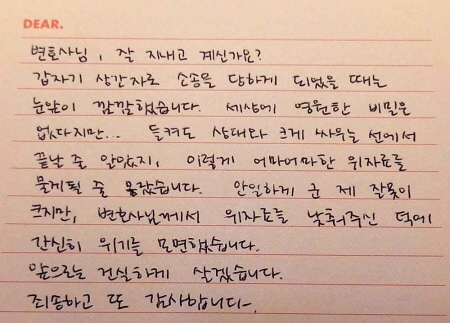 DEAR.
변호사님, 잘 지내고 계신가요?
갑자기 상간자로 소송을 당하게 되었을 때는
눈앞이 깜깜했습니다. 세상에 영원한 비밀은
없다지만... 들켜도 상대와 크게 싸우는 선에서
끝날 줄 알았지, 이렇게 어마어마한 위자료를
물게될 줄 몰랐습니다. 안일하게 군 제 잘못이
크지만, 변호사님께서 위자료를 낮춰주신 덕에
간신히 위기를 모면했습니다.
앞으로는 건실하게 살겠습니다.
죄송하고 또 감사합니다.